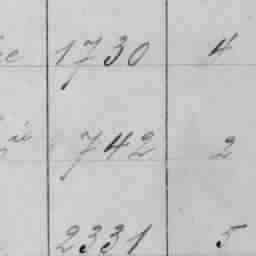 1730 4
742 2
2331 5